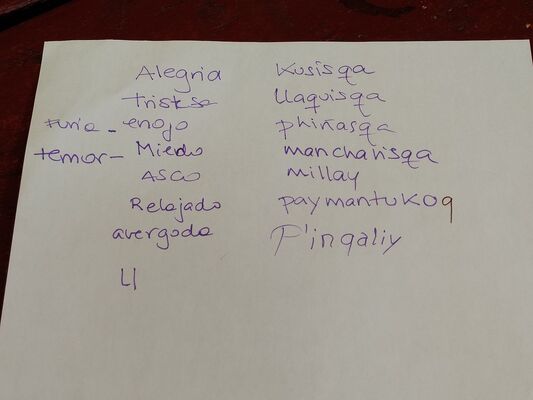 Alegria Kusisqa
tristsa llaquisqa
Furia - enojo phiñasqa
temor - Miedo mancharisqa
ASCO millay
Relajado paymantukoq
avergoda P'inqaliy
Ll